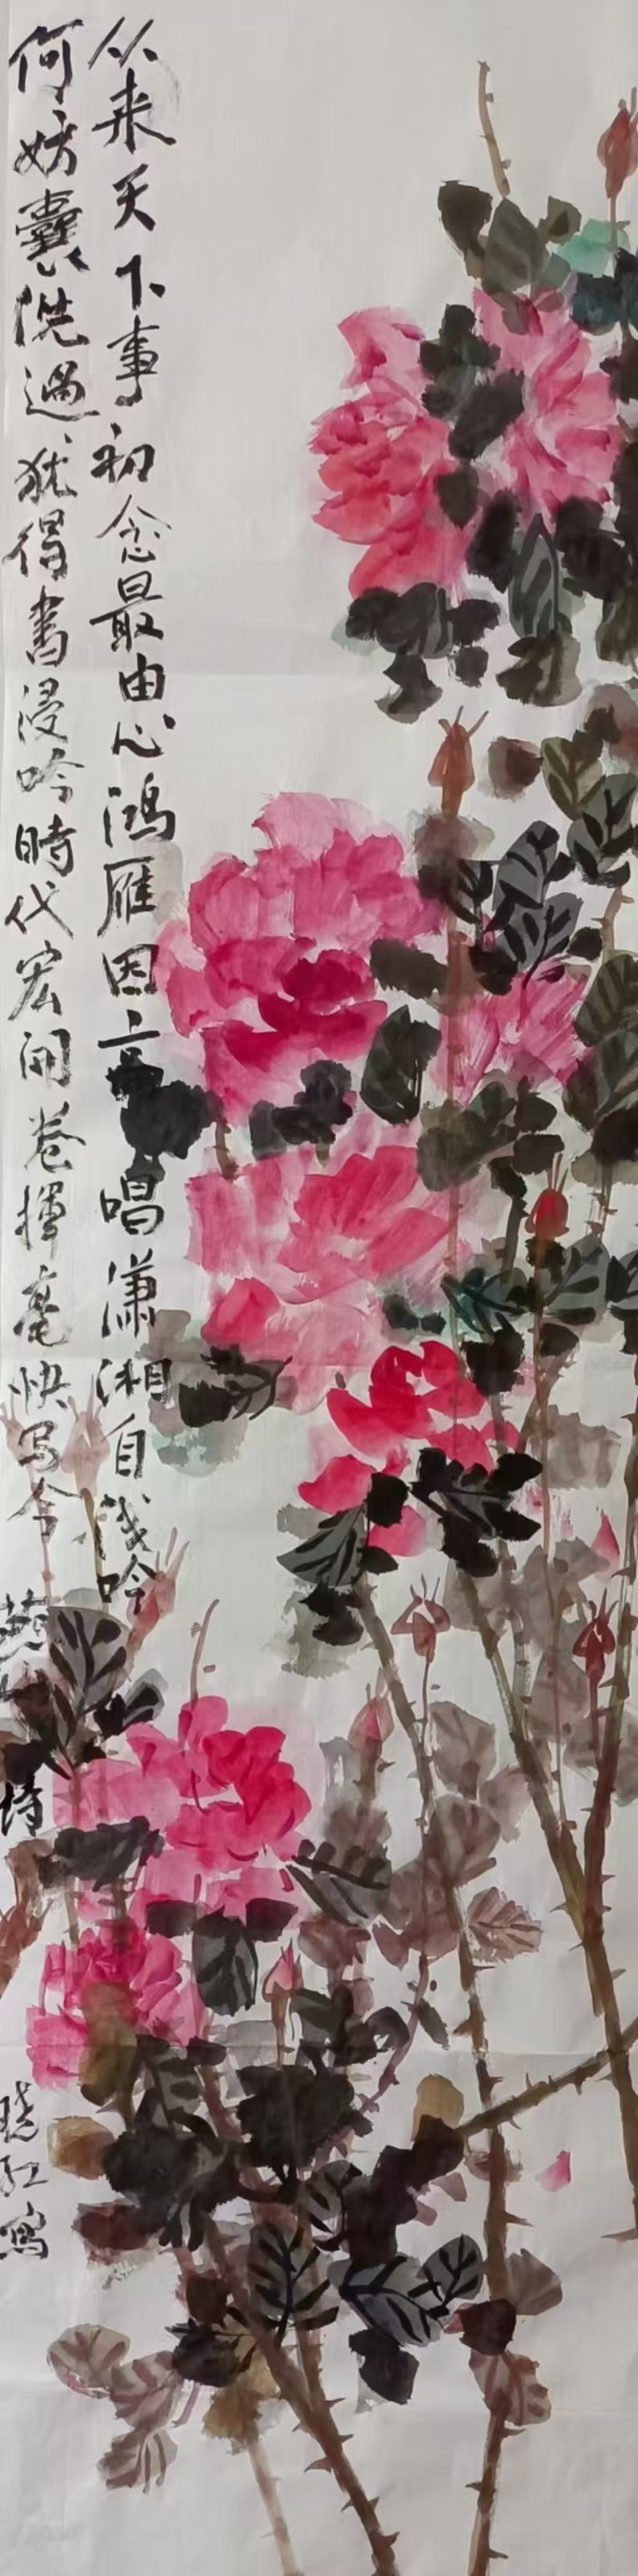 从来天下事初念最由心鸿雁因高唱潇湘自浅吟
何妨囊洗过犹得書浸吟時代宏開卷揮毫快写今
诗
晓红寫